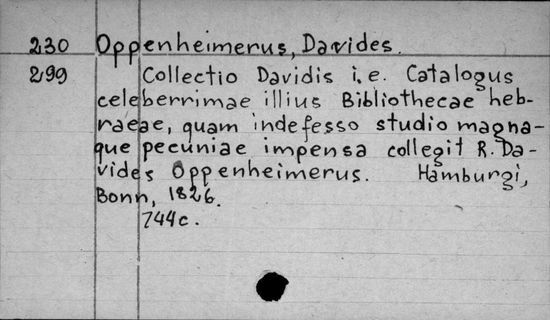 230 Oppenheimerus, Davides.
299 Collectio Davidis i.e. Catalogus
celeberrimae illius Bibliothecae heb-
raeae, quam indefesso studio magna-
que pecuniae impensa collegit R. Da-
vides Oppenheimerus. Hamburgi,
Bonn, 1826.
744c.